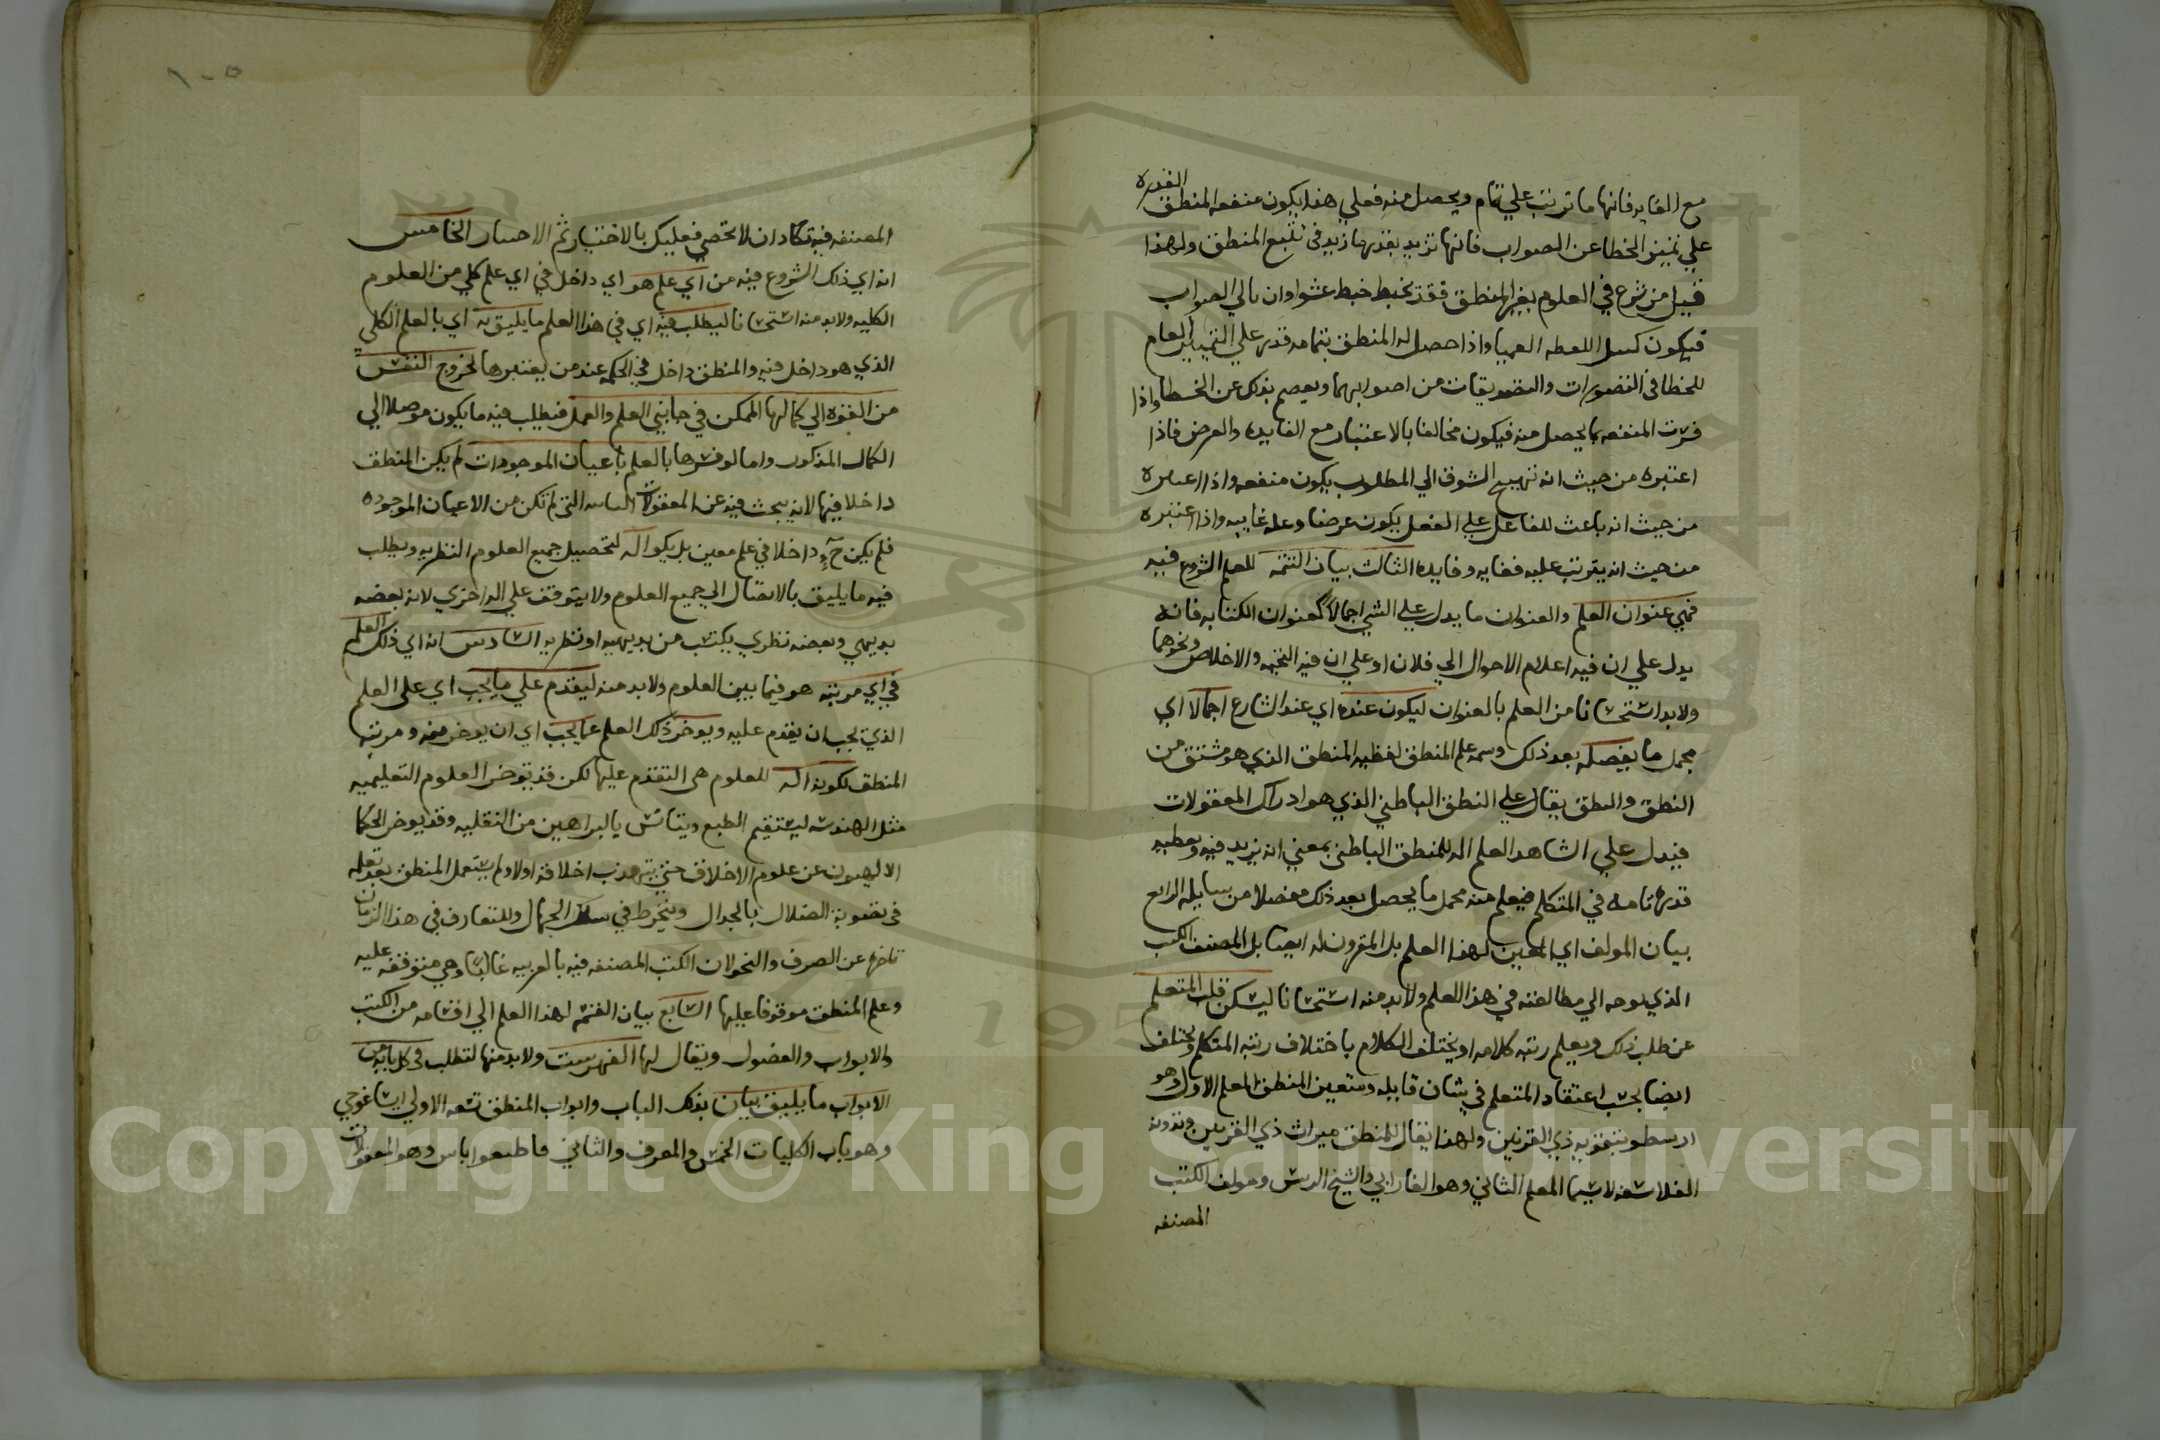 مع الغايه فانها ما ترتب علي تمام ويحصل منه فعلي هذا يكون منفعه المنطق القدره
علي تمييز الخطا عن الصواب فانها تزيد بقدر ما زيد في تتبع المنطق ولهذا
قيل من شرع في العلوم بغير المنطق فقد تخبط خبط عشوا وان نال الصواب
فيكون كسل اللعطه العميا واذا حصل له المنطق بتمامه قدر علي التمييز العام
للخطا في التصورات والتصديقات من اصوابهما ويعصم بذلك عن الخطا واذا
فسرت المنفعه بما يحصل منه فيكون مخالفا بالاعتبار مع الفايده والغرض فاذا
اعتبره من حيث انه تهييج الشوق الي المطلوب يكون منفعه واذا اعتبره
من حيث انه باعث للفاعل علي الفعل يكون غرضا وعله غاييه واذا اعتبره
من حيث انه يترتب عليه فغايه وفايده الثالث بيان التسمه للعلم الشروع فيه
فهي عنوان العلم والعنوان ما يدل علي الشي اجمالا كعنوان الكتابه فانه
يدل علي ان فيه اعلام الاحوال الي فلان او علي ان فيه التحيه والاخلاص ونحوهما
ولابد استحسانا من العلم بالعنوان ليكون عنده اي عند الشارع اجمالا اي
مجمل ما يفصله بعد ذلك وسمه علم المنطق لفظيه المنطق الذي هو مشتق من
النطق والنطق يقال علي النطق الباطني الذي هو ادراك المعقولات
فيدل علي الشاهد العلم اله للمنطق الباطني بمعني انه يزيد فيه ويعطيه
قدره تامه في المتكلم فيعلم منه مجمل ما يحصل بعد ذلك مفصلا من مسايله الرابع
بيان المولف اي المعين لهذا العلم بل المقرون له ايضا بل المصنف الكتب
الذي يوجه الي مطالعته في هذا العلم ولابد منه استحسانا ليسكن قلب المتعلم
عن طلب ذلك ويعلم رتبه كلامه او يختلف الكلام باختلاف رتبه المتكلم ويختلف
ايضا بحسب اعتقاد المتعلم في شان قايله ومتعين المنطق المعلم الاول وهو
ارسطو بتجربه ذي القرنين ولهذا يقال للمنطق ميراث ذي القرنين ودونه
الفلاسفه لا سيما المعلم الثاني وهو الفارابي والشيخ الريس ومولف الكتب
المصنفه
١٠٥
المصنفه فيه تكاد ان لا تحصي فعليك بالاختيار ثم الاختيار الخامس
انه اي ذلك الشروع فيه من اي علم هو اي داخل في اي علم كلي من العلوم
الكليه ولابد منه استحسانا ليطلب فيه اي في هذا العلم ما يليق به اي بالعلم الكلي
الذي هو داخل فيه والمنطق داخل في الحكمه عند من يفسرها بخروج النفس
من القوه الي كمالها الممكن في جانبي العلم والعمل فيطلب فيه ما يكون موصلا الي
الكمال المذكور واما لو فسرها بالعلم باعيان الموجودات لم يكن المنطق
داخلا فيها لانه يبحث فيه عن المعقولات الثانيه التي لم تكن من الاعيان الموجوده
فلم يكن ح داخلا في علم معين بل يكون اله لتحصيل جميع العلوم النظريه ويطلب
فيه ما يليق بالايصال الي جميع العلوم ولا يتوقف علي اله اخري لانه بعضه
بديهي وبعضه نظري يكتسب من بديهيه او نظريه السادس انه اي ذلك العلم
في اي مرتبه هو فيما بين العلوم ولابد منه ليقدم علي ما يجب اي علي العلم
الذي يجب ان يقدم عليه ويوخر ذلك العلم عما يجب اي ان يوخر منه ومرتبه
المنطق لكونه اله للعلوم هي التقدم عليها لكن قد توخر العلوم التعليميه
مثل الهندسه ليستقيم الطبع ويتانس بالبراهين من النقليه وقد يوخر الحكما
الالهيون عن علوم الاخلاق حتي يتهذب اخلاقه اولا ولم يستعمل المنطق بعد تعلمه
في تصويبه الضلال بالجدال وينخرط في سلك الجهال وللتعارف في هذا الزمان
تاخره عن الصرف والنحو لان الكتب المصنفه فيه بالعربيه غالبا وهي متوقفه عليه
وعلم المنطق موقوفا عليها السابع بيان القسمه لهذا العلم الي اقسامه من الكتب
والابواب والفصول ويقال لها الفهرست ولابد منها لتطلب في كل باب من
الابواب ما يليق بيان بذلك الباب وابواب المنطق تسعه الاولي ايساغوجي
وهو باب الكليات الخمس والمعرف والثاني قاطيغورياس وهو المعقولات
Copyright © King Saud University